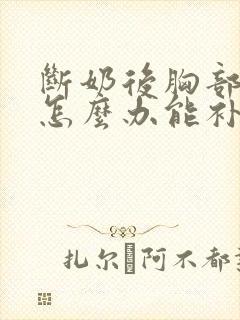 斷奶後胸部
怎麼办能补
扎尔 阿不都